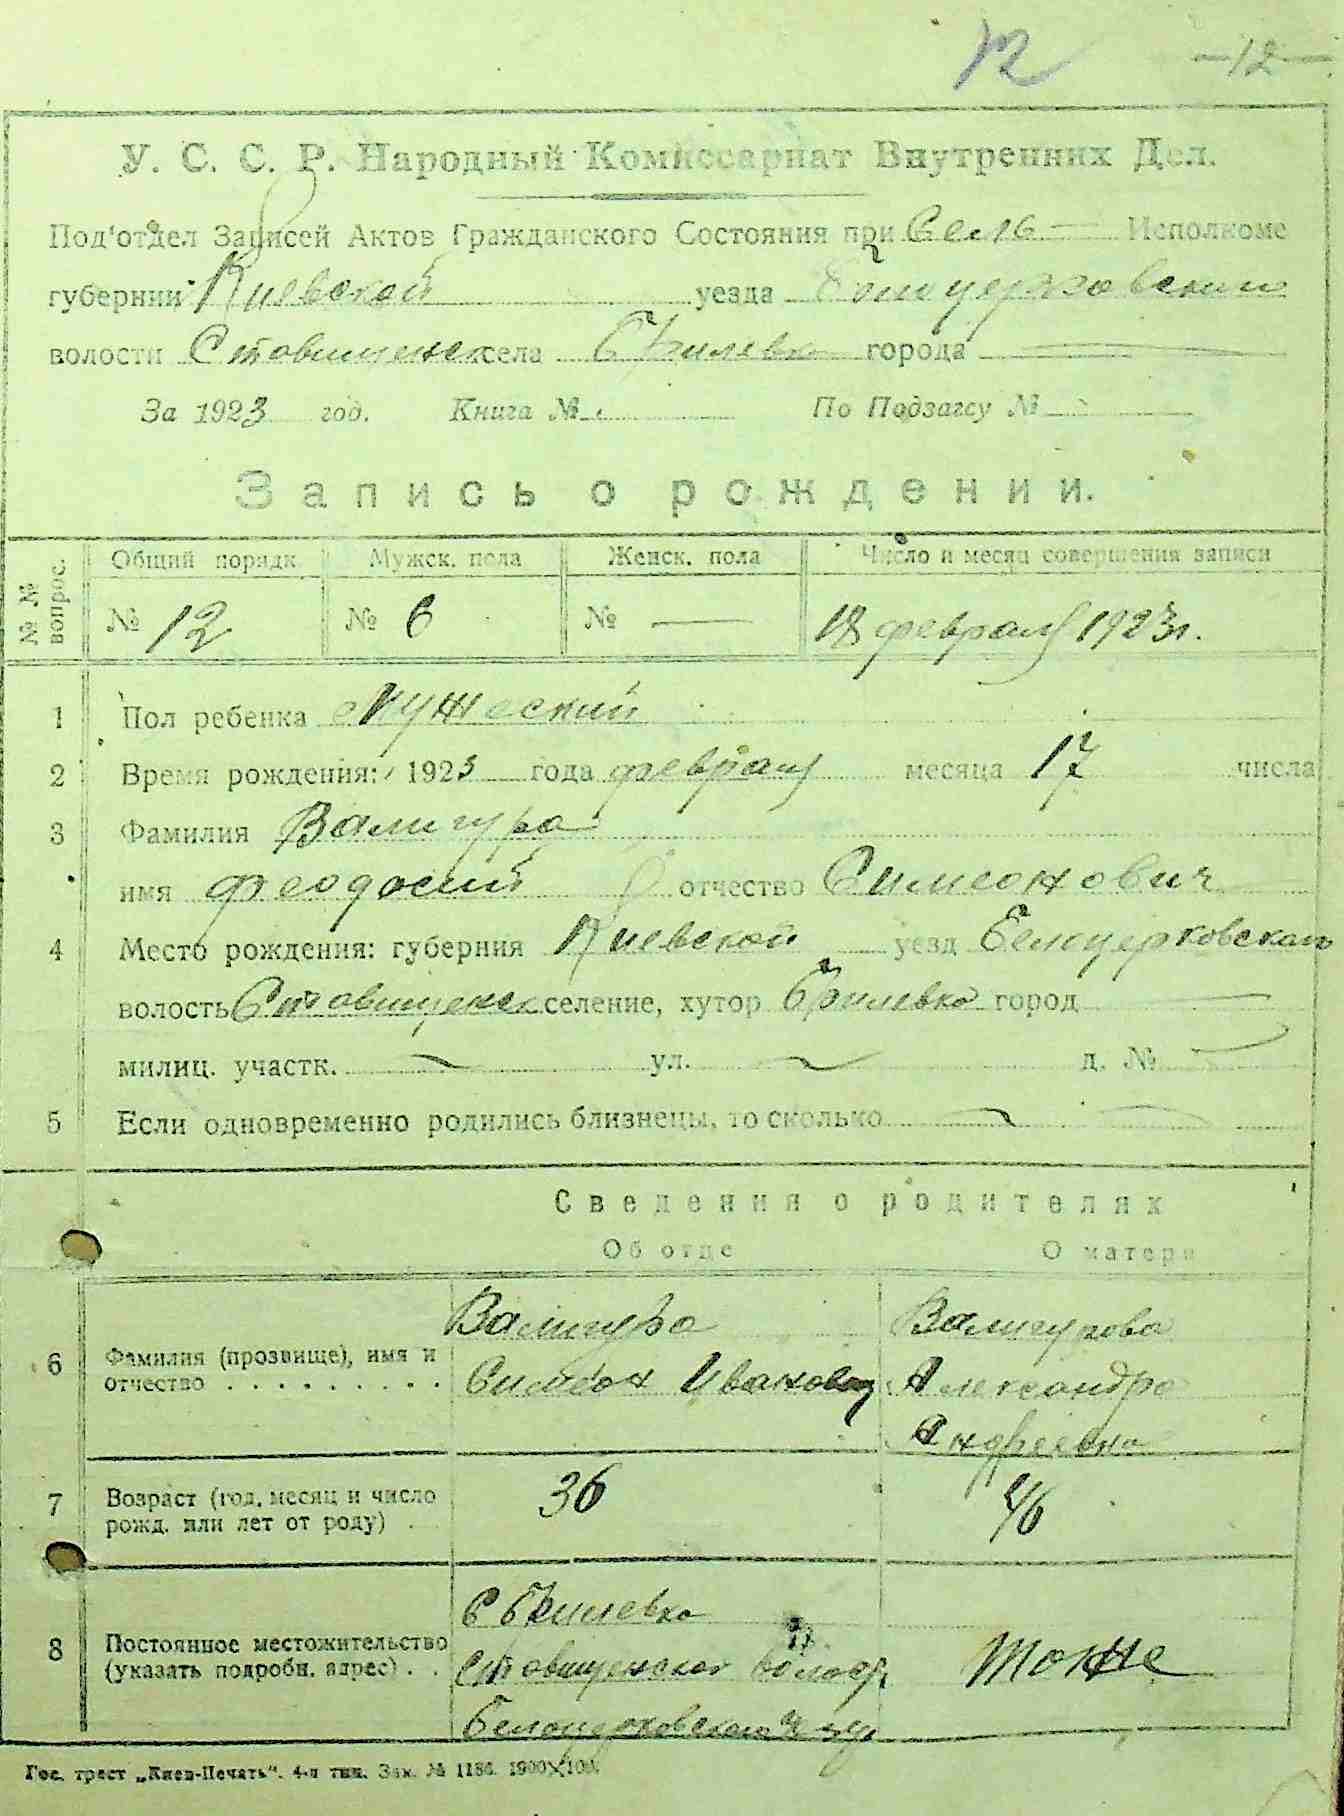 12 —12—
У. С. С. Р. Народный Комиссариат Внутренних Дел.
Под'отдел Записей Актов Гражданского Состояния при Сель — Исполкоме
губернии Киевской уезда Белоцерковском
волости Ставищенск села Брилевка города —
За 1923 год. Книга № По Подзагсу №
Запись о рождении.
№ № вопрос. Общий порядк. Мужск. пола Женск. пола Число и месяц совершения записи
№ 12 № 6 № — 18 февраля 1923 г.
1 Пол ребенка Мужеский
2 Время рождения: 1923 года февраля месяца 17 числа
3 Фамилия Валигура
имя Феодосий отчество Симеонович
4 Место рождения: губерния Киевской уезд Белоцерковскаго
волость Ставищенск селение, хутор Брилевка город —
милиц. участк. — ул. — д. № —
5 Если одновременно родились близнецы, то сколько —
Сведения о родителях
Об отце О матери
Валигура Валигурова
6 Фамилия (прозвище), имя и Симеон Иванович Александра
отчество . . . . . . . . . Андреевна
7 Возраст (год, месяц и число 36
рожд. или лет от роду) .
С Брилевка
8 Постоянное местожительство Ставищенской волост. тоже
(указать подробн. адрес) . .
Белоцерковского у
Гос. трест „Киев-Печать". 4-я тип. Зак. № 1186. 1900×100.